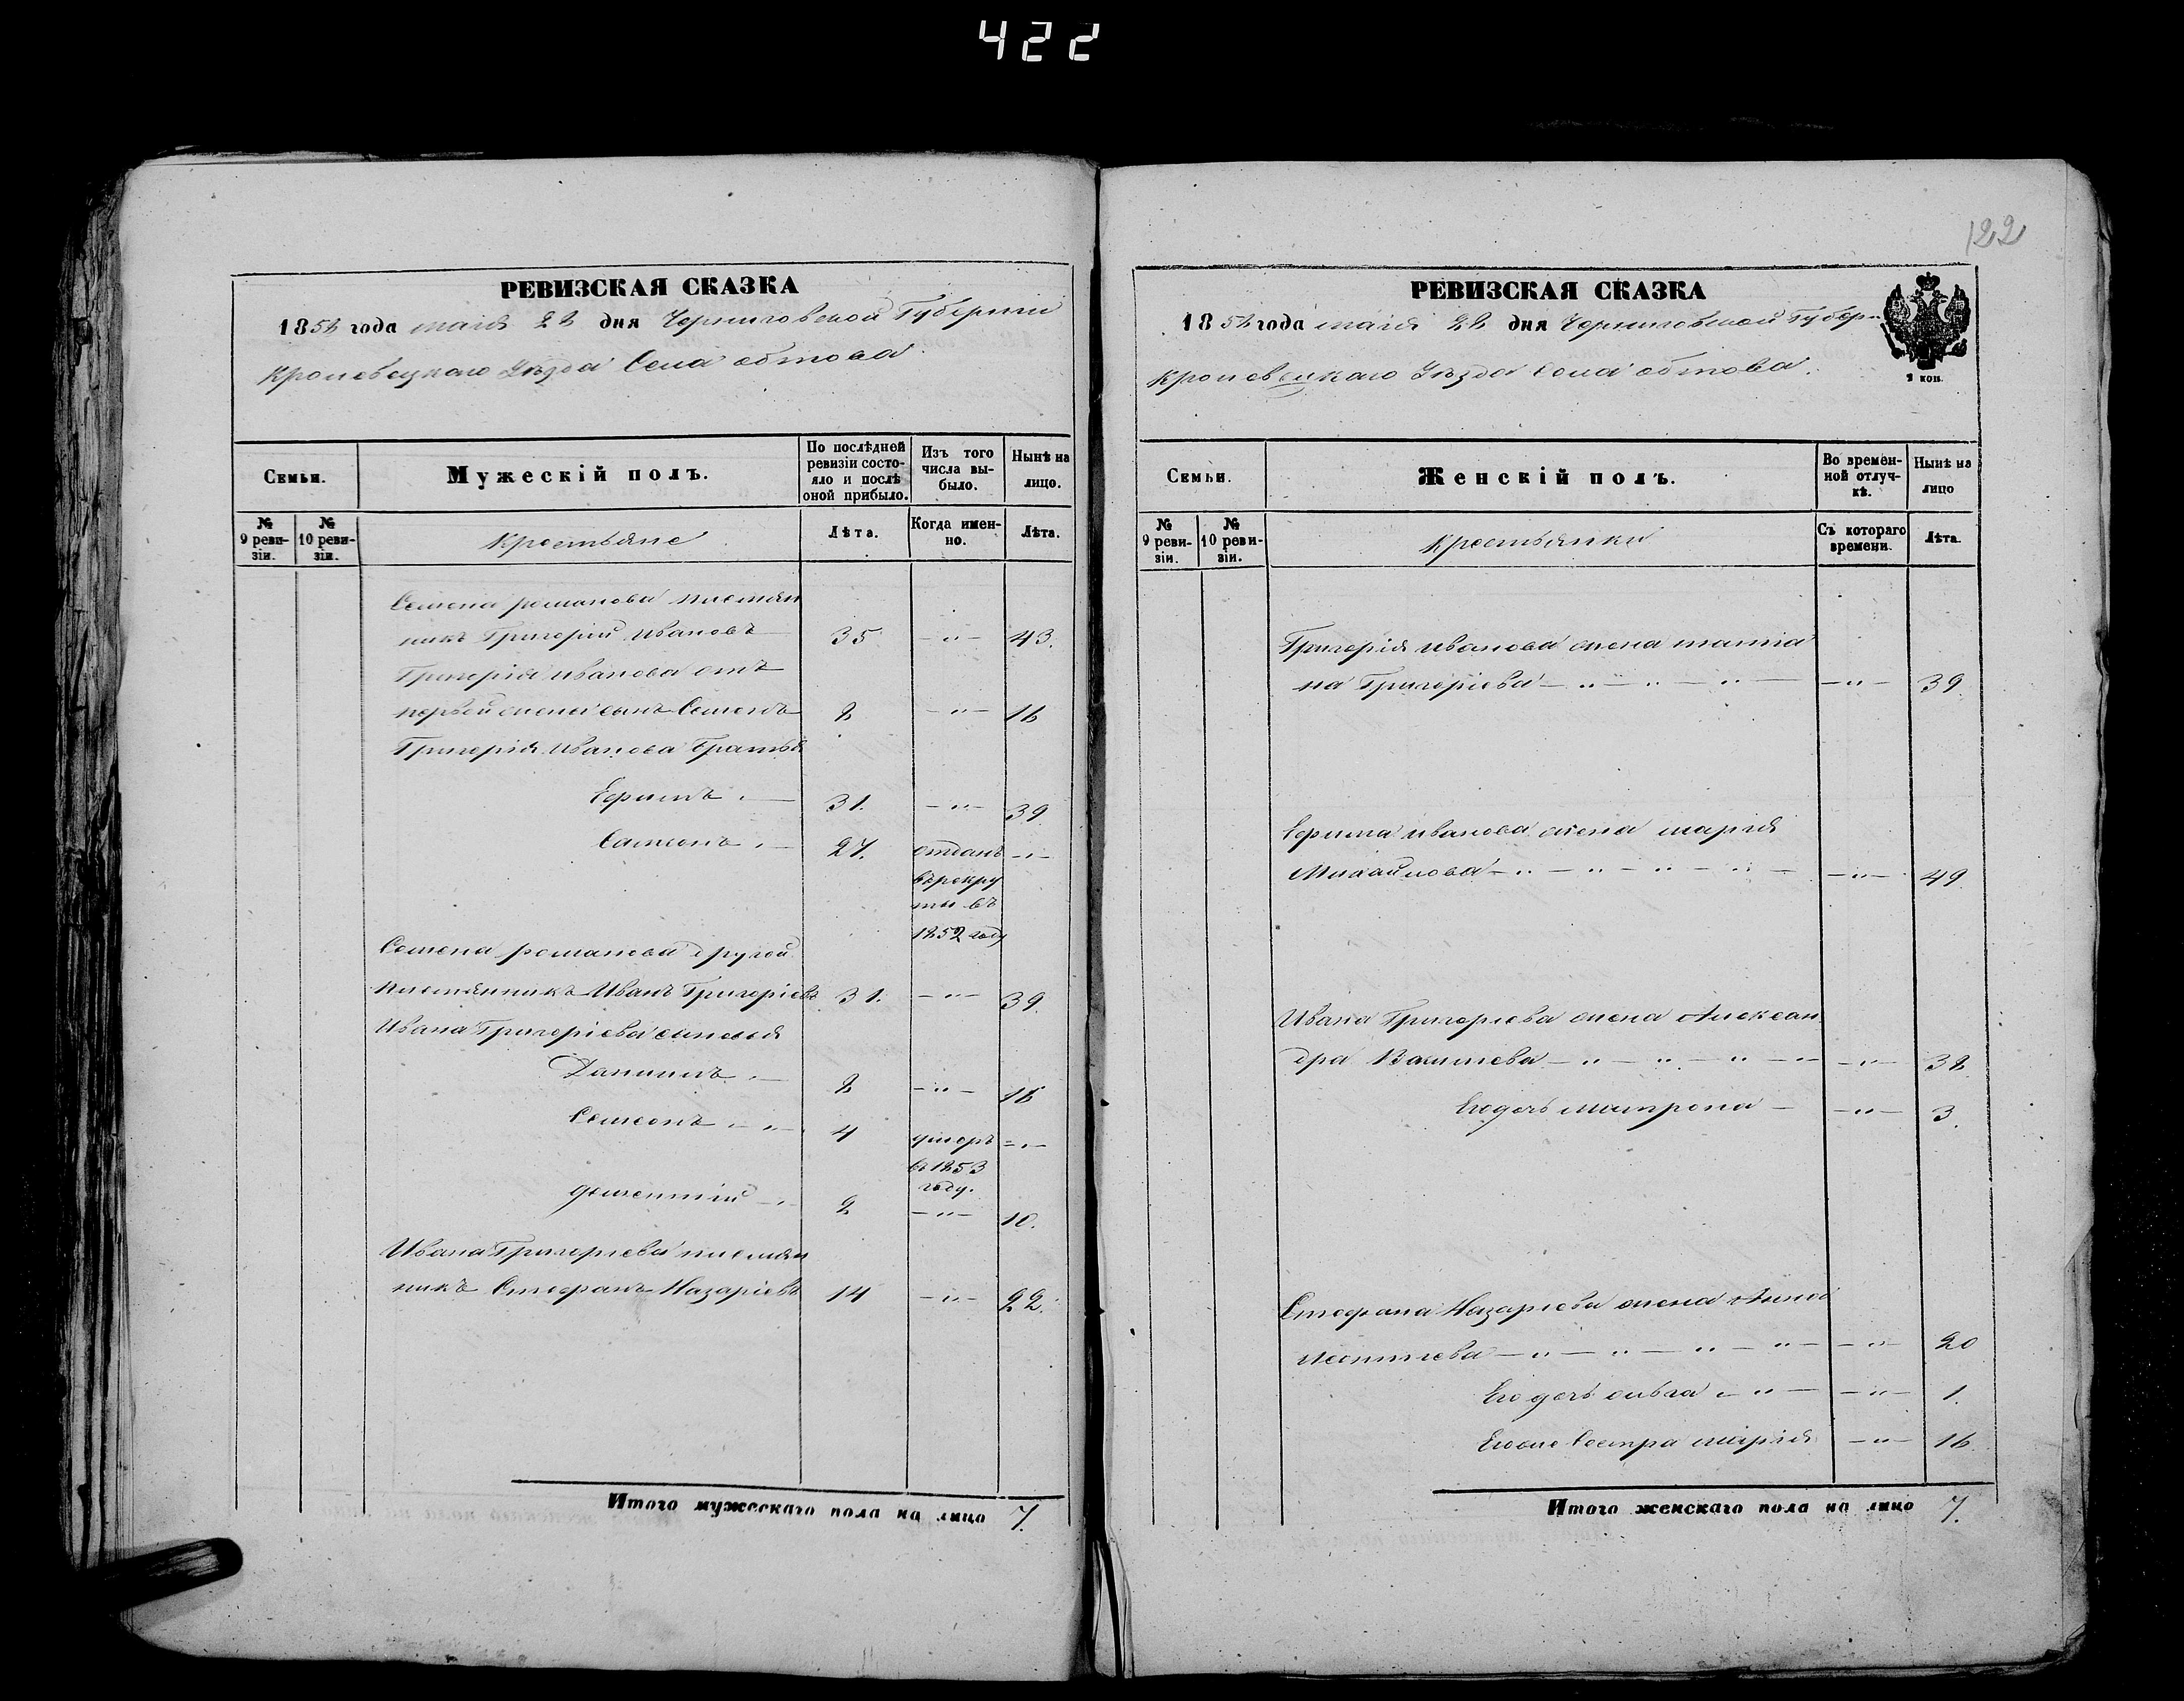 422
122
РЕВИЗСКАЯ СКАЗКА
1858 года маія 22 дня Черниговской Губерніи
Кролевецкаго Уѣзда Села Обтова.
Семьи.
Мужескій полъ.
По послѣдней ревизіи состояло и послѣ оной прибыло.
Изъ того числа выбыло.
Нынѣ на лицо.
№ 9 ревизіи.
№ 10 ревизіи.
Крестьяне
Лѣта.
Когда именно.
Лѣта.
Семена романова племян
никъ Григорий Ивановъ 35 —"— 43.
Григорія иванова отъ
первой жены сынъ Семенъ 8 —"— 16
Григорія Иванова братья
Ефимъ 31. —"— 39.
Самсонъ 27. отданъ —"—
въ рекру
ты въ
1852 году
Семена романова другой
племянникъ Иванъ Григоріевъ 31. —"— 39.
Ивана Григоріева сыновья
Данилъ 8 —"— 16
Семсонъ 4 умеръ —"—
въ 1853
году.
2 —"— 10.
Ивана Григоріева племян
никъ Стефанъ Назаріевъ 14 —"— 22.
Итого мужескаго пола на лицо 7.
РЕВИЗСКАЯ СКАЗКА
1858 года маія 22 дня Черниговской Губер
Кролевецкаго Уѣзда Села Обтова.
2 коп.
Семьи.
Женскій полъ.
Во временной отлучкѣ.
Нынѣ на лицо
№ 9 ревизіи.
№ 10 ревизіи.
Крестьянки
Съ котораго времени.
Лѣта.
Григорія иванова жена татіа
на Григоріева —"— 39.
Ефима иванова жена марія
Михайлова —"— 49.
Ивана Григорьева жена Алексан
дра —"— 38
Его дочь матрона —"— 3.
Стефана Назарьева жена Анна
Леонтіева —"— 20
Его дочь ольга —"— 1.
Егоже Сестра марія —"— 16
Итого женскаго пола на лицо 7.